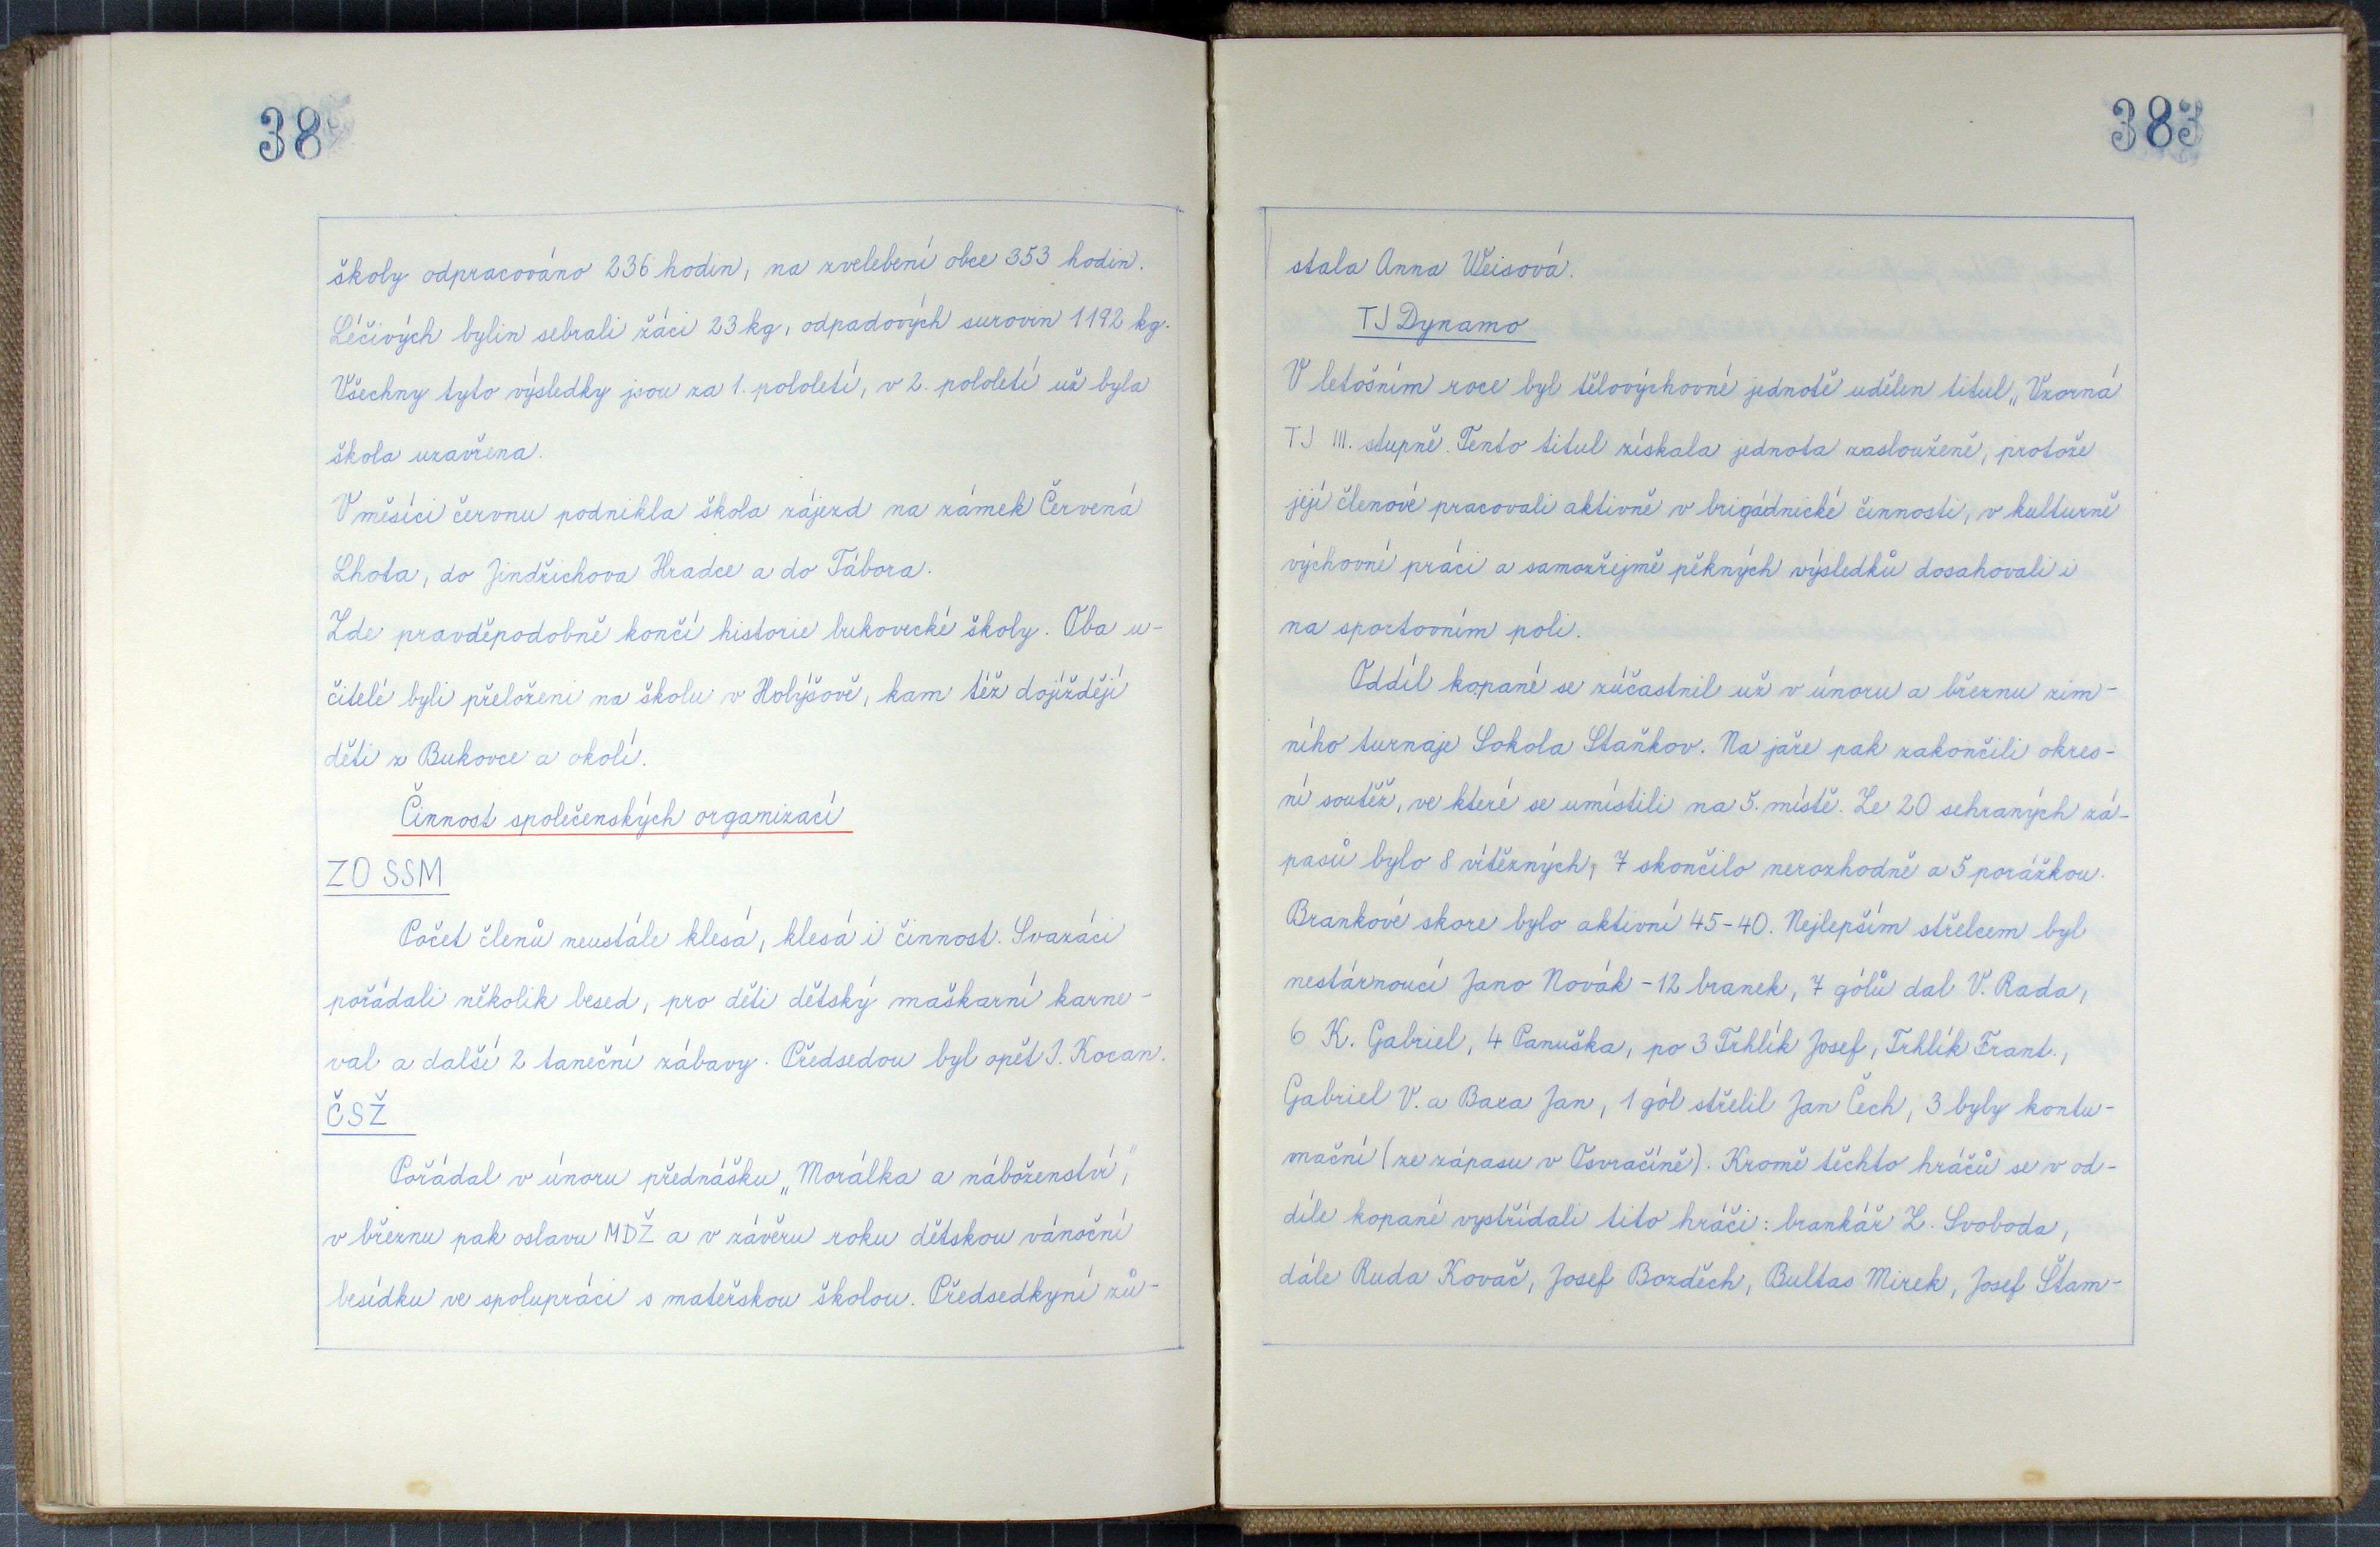 38
školy odpracováno 236 hodin, na zvelebení obce 353 hodin.
Léčivých bylin sebrali žáci 23 kg, odpadových surovin 1192 kg.
Všechny tyto výsledky jsou za 1. pololetí, v 2. pololetí už byla
škola uzavřena.
V měsíci červnu podnikla škola zájezd na zámek Červená
Lhota, do Jindřichova Hradce a do Tábora.
Zde pravděpodobně končí historie bukovecké školy. Oba u-
čitelé byli přeloženi na školu v Holýšově, kam též dojíždějí
děti z Bukovce a okolí.
Činnost společenských organizací
ZO SSM
Počet členů neustále klesá, klesá i činnost. Svazáci
pořádali několik besed, pro děti dětský maškarní karne-
val a další 2 taneční zábavy. Předsedou byl opět J. Kocan.
ČSŽ
Pořádal v únoru přednášku „Morálka a náboženství",
v březnu pak oslavu MDŽ a v závěru roku dětskou vánoční
besídku ve spolupráci s mateřskou školou. Předsedkyní zů-
383
stala Anna Weisová.
TJ Dynamo
V letošním roce byl tělovýchovné jednotě udělen titul „Vzorná
TJ III. stupně. Tento titul získala jednota zaslouženě, protože
její členové pracovali aktivně v brigádnické činnosti, v kulturně
výchovné práci a samozřejmě pěkných výsledků dosahovali i
na sportovním poli.
Oddíl kopané se zúčastnil už v únoru a březnu zim-
ního turnaje Sokola Staňkov. Na jaře pak zakončili okres-
ní soutěž, ve které se umístili na 5. místě. Ze 20 sehraných zá-
pasů bylo 8 vítězných, 7 skončilo nerozhodně a 5 porážkou.
Brankové skore bylo aktivní 45-40. Nejlepším střelcem byl
nestárnoucí Jano Novák - 12 branek, 7 gólů dal V. Rada,
6 K. Gabriel, 4 Panuška, po 3 Trhlík Josef, Trhlík Frant.,
Gabriel V. a Baxa Jan, 1 gól střelil Jan Čech, 3 byly kontu-
mační (ze zápasu v Osvračíně). Kromě těchto hráčů se v od-
díle kopané vystřídali tito hráči: brankář Z. Svoboda,
dále Ruda Kovač, Josef Bozděch, Bultas Mirek, Josef Štam-